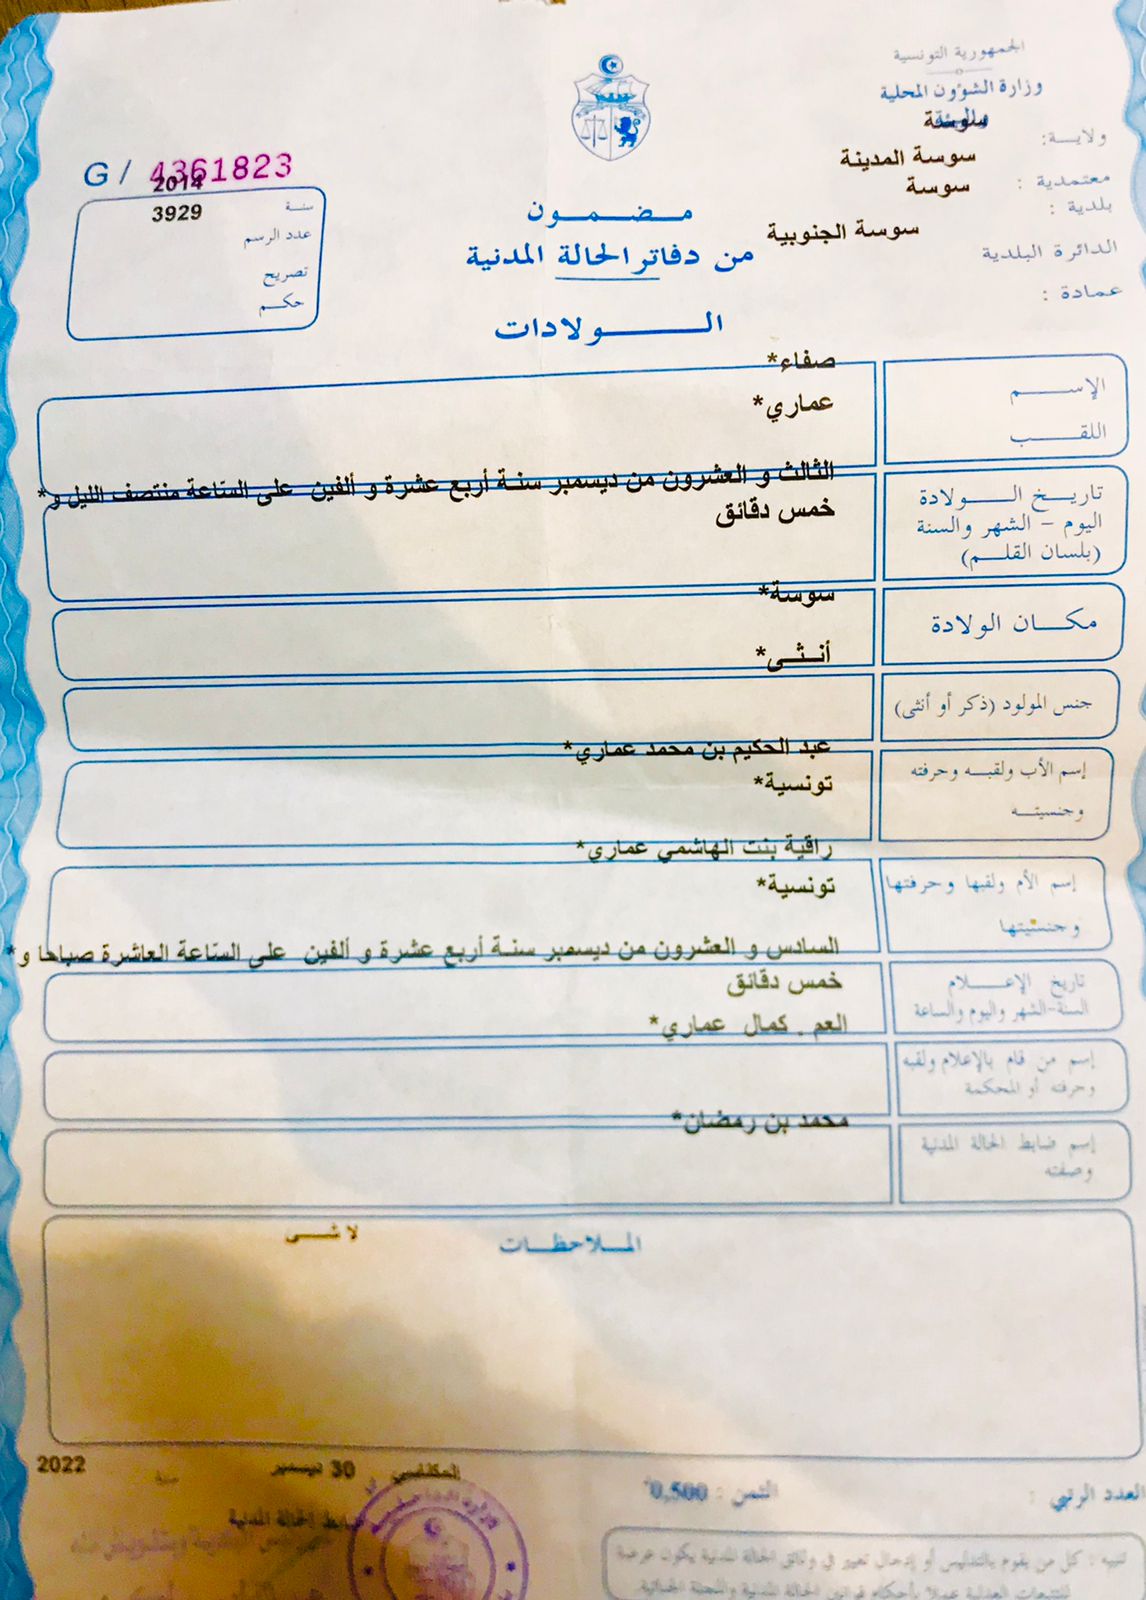 الجمهورية التونسية
وزارة الشؤون المحلية
ولايـة: سوسة
معتمدية : سوسة المدينة
بلدية : سوسة
الدائرة البلدية سوسة الجنوبية
عمادة :
G / 4361823
سنة 2014
عدد الرسم 3929
تصريح
حكم
مـضـمـون
من دفاتر الحالة المدنية
الـــولادات
الإســـم صفاء*
اللقـب عماري*
تاريـخ الــولادة الثالث و العشرون من ديسمبر سنة أربع عشرة و ألفين على الساعة منتصف الليل و*
اليوم - الشهر والسنة خمس دقائق
(بلسان القلـم)
مكـان الولادة سوسة*
أنـثـى*
جنس المولود (ذكر أو أنثى)
عبد الحكيم بن محمد عماري*
إسم الأب ولقبـه وحرفته تونسية*
وجنسيتـه
راقية بنت الهاشمي عماري*
إسم الأم ولقبها وحرفتها تونسية*
وجنسيتها
السادس و العشرون من ديسمبر سنة أربع عشرة و ألفين على الساعة العاشرة صباحا و*
تاريخ الإعـلام خمس دقائق
السنة-الشهر واليوم والساعة
العم . كمال عماري*
إسم من قام بالإعلام ولقبه
وحرفته أو المحكمة
محمد بن رمضان*
إسم ضابط الحالة المدنية
وصفته
المـلاحظـات
لا شـى
العدد الرتبي :
الثمن : 0,500
المكناسي 30 ديسمبر سنة 2022
ضابط الحالة المدنية
تنبيه : كل من يقوم بالتدليس أو إدخال تغيير في وثائق الحالة المدنية يكون عرضة
للتتبعات العدلية عملا بأحكام قوانين الحالة المدنية والمجلة الجنائية.